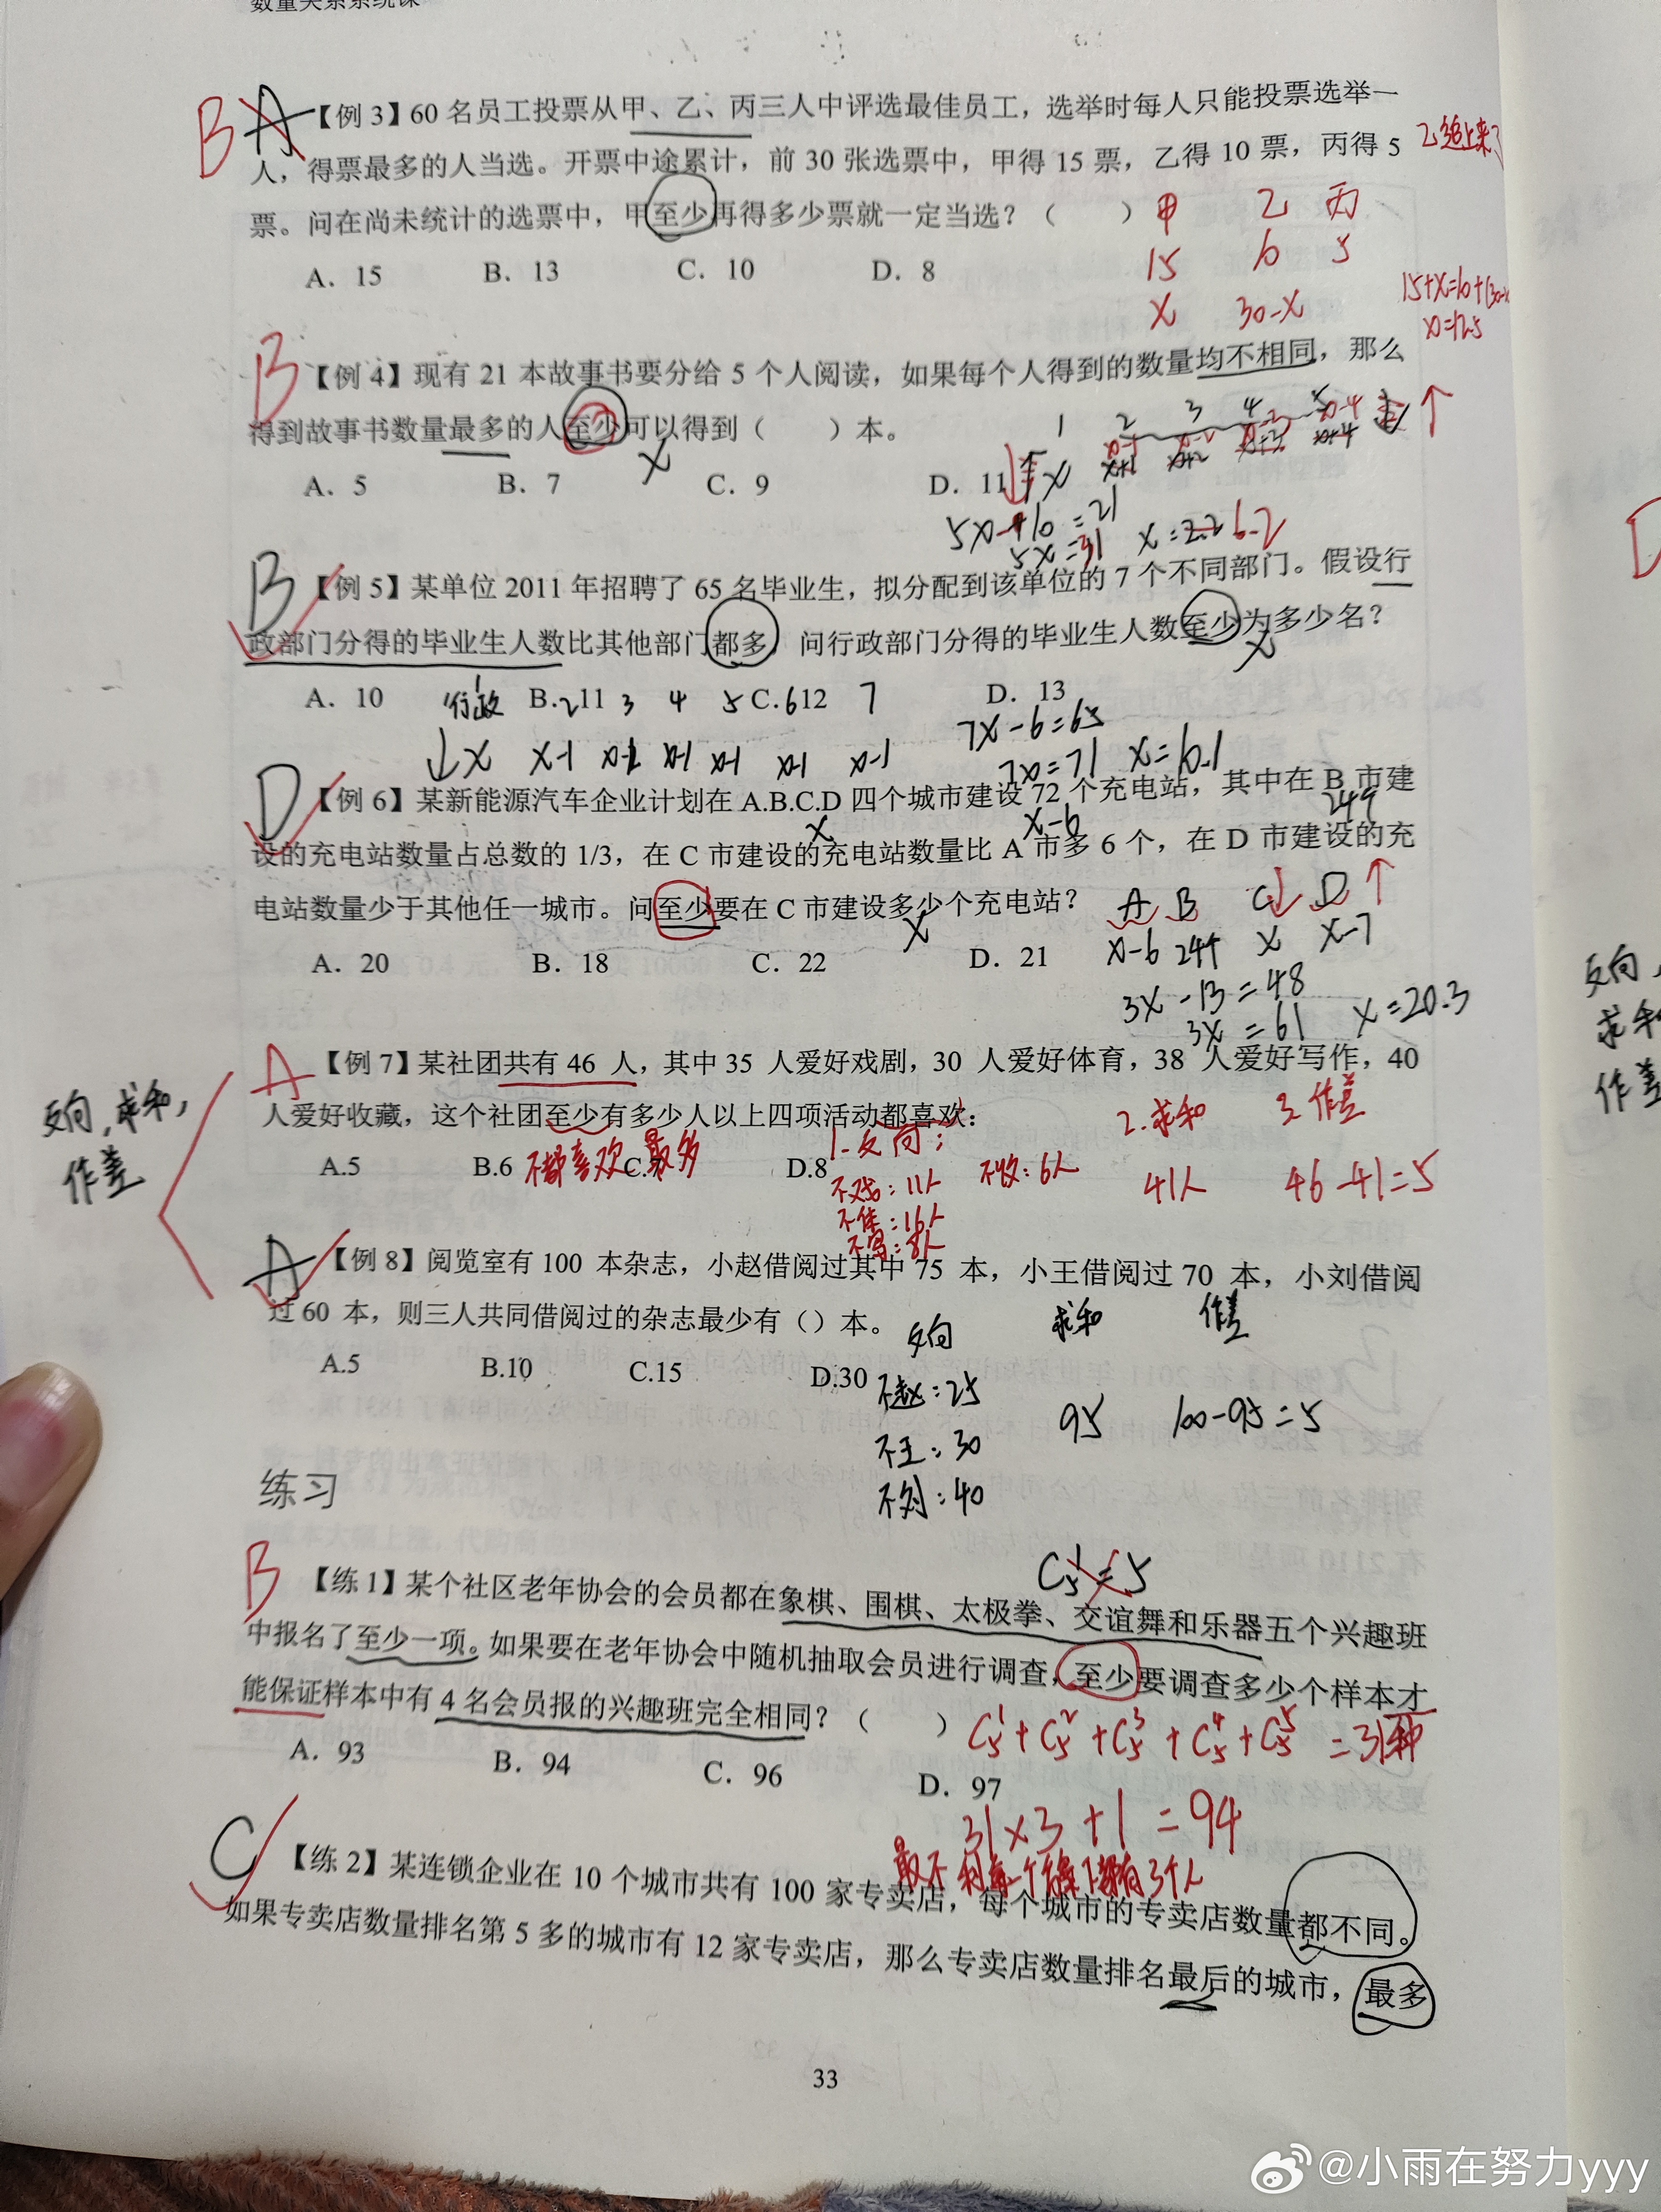 数量关系系统课
B A 【例 3】60 名员工投票从甲、乙、丙三人中评选最佳员工，选举时每人只能投票选举一
人，得票最多的人当选。开票中途累计，前 30 张选票中，甲得 15 票，乙得 10 票，丙得 5
乙追上来
票。问在尚未统计的选票中，甲至少再得多少票就一定当选？（ ）
甲 乙 丙
A．15 B．13 C．10 D．8
15 10 5
x 30-x
15+x=10+(30-x
x=12.5
B 【例 4】现有 21 本故事书要分给 5 个人阅读，如果每个人得到的数量均不相同，那么
得到故事书数量最多的人至少可以得到（ ）本。
x
1 2 3 4 5
x-1 x-2 x-3 x-4
x x+1 x+2 x+3 x+4
A．5 B．7 C．9 D．11
5x-10=21
5x=31 x=2.2 6.2
B 【例 5】某单位 2011 年招聘了 65 名毕业生，拟分配到该单位的 7 个不同部门。假设行
政部门分得的毕业生人数比其他部门都多，问行政部门分得的毕业生人数至少为多少名？
x
A．10 B．11 C．12 D．13
行政 1 2 3 4 5 6 7
x x-1 x-1 x-1 x-1 x-1 x-1
7x-6=65
7x=71 x=10.1
D 【例 6】某新能源汽车企业计划在 A.B.C.D 四个城市建设 72 个充电站，其中在 B 市建
x x-6 24个
设的充电站数量占总数的 1/3，在 C 市建设的充电站数量比 A 市多 6 个，在 D 市建设的充
电站数量少于其他任一城市。问至少要在 C 市建设多少个充电站？
x
A B C D
A．20 B．18 C．22 D．21
x-6 24个 x x-7
3x-13=48
3x=61 x=20.3
A 【例 7】某社团共有 46 人，其中 35 人爱好戏剧，30 人爱好体育，38 人爱好写作，40
人爱好收藏，这个社团至少有多少人以上四项活动都喜欢：
反向，求和，
作差
A.5 B.6 C.7 D.8
不都喜欢 最多
1.反向： 2.求和 3.作差
不戏：11人 不收：6人 41人 46-41=5
不体：16人
不写：8人
A 【例 8】阅览室有 100 本杂志，小赵借阅过其中 75 本，小王借阅过 70 本，小刘借阅
过 60 本，则三人共同借阅过的杂志最少有（）本。
反向 求和 作差
A.5 B.10 C.15 D.30
不赵：25
不王：30 95 100-95=5
不刘：40
练习
C₅¹=5
B 【练 1】某个社区老年协会的会员都在象棋、围棋、太极拳、交谊舞和乐器五个兴趣班
中报名了至少一项。如果要在老年协会中随机抽取会员进行调查，至少要调查多少个样本才
能保证样本中有 4 名会员报的兴趣班完全相同？（ ）
C₅¹+C₅²+C₅³+C₅⁴+C₅⁵=31种
A．93 B．94 C．96 D．97
31×3+1=94
C 【练 2】某连锁企业在 10 个城市共有 100 家专卖店，每个城市的专卖店数量都不同。
如果专卖店数量排名第 5 多的城市有 12 家专卖店，那么专卖店数量排名最后的城市，最多
33
反向，
求和
作差
@小雨在努力yyy